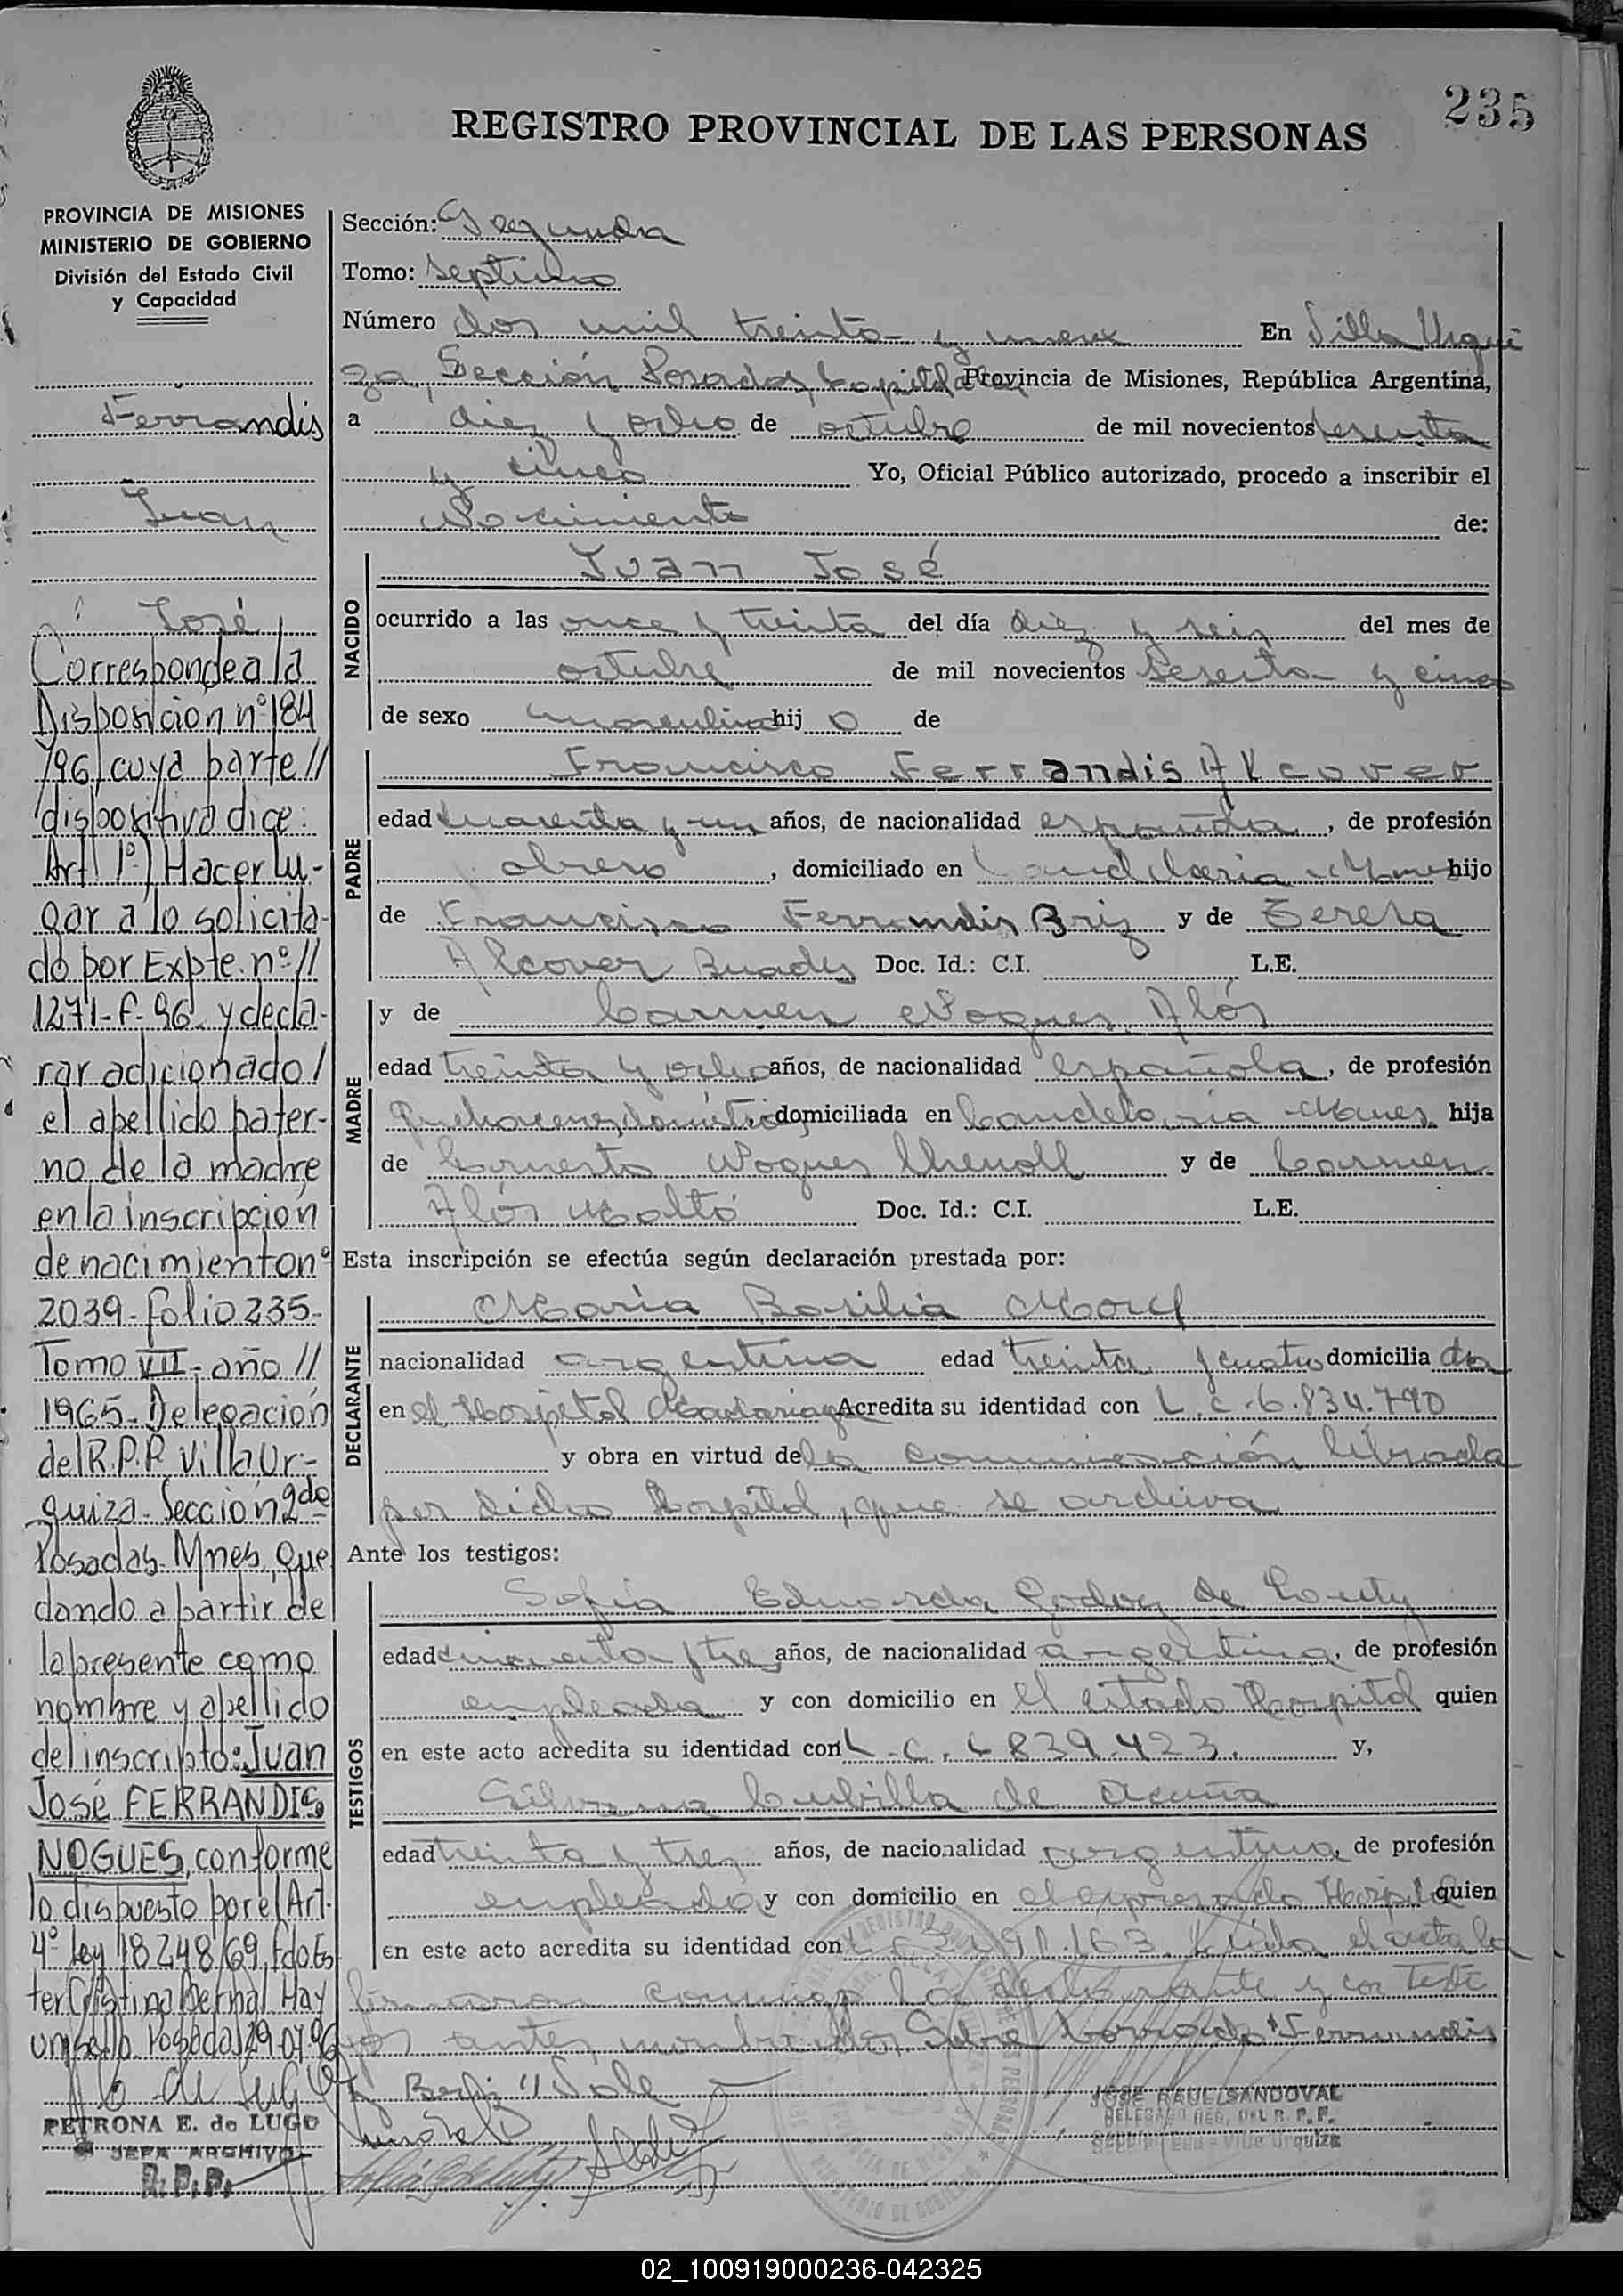 235
REGISTRO PROVINCIAL DE LAS PERSONAS
PROVINCIA DE MISIONES
MINISTERIO DE GOBIERNO
División del Estado Civil
y Capacidad
Ferrandis
Juan
José
Corresponde a la
Disposicion nº 184
/96, cuya parte //
dispositiva dice:
Art 1º) Hacer lu-
gar a lo solicita-
do por Expte. nº //
1271-F-96 y decla-
rar adicionado /
el apellido pater-
no de la madre
en la inscripción
de nacimiento nº
2039- folio 235-
Tomo VII- año //
1965- Delegación
del R.P.P. Villa Ur-
quiza- Sección 2da
Posadas- Mnes, Que
dando a partir de
la presente como
nombre y apellido
del inscripto: Juan
José FERRANDIS
NOGUES, conforme
lo dispuesto por el Art.
4º ley 18248/69, fdo Es
ter Cristina Bernal Hay
un sello Posadas 29-07-96
PETRONA E. de LUGO
JEFA ARCHIVO
R. P. P.
Sección: Segunda
Tomo: septimo
Número dos mil treinta y nueve En Villa Urqui
za, Sección Posadas, Capital Provincia de Misiones, República Argentina,
a diez y ocho de octubre de mil novecientos sesenta
y cinco Yo, Oficial Público autorizado, procedo a inscribir el
Nacimiento de:
NACIDO
Juan José
ocurrido a las once y treinta del día diez y seis del mes de
octubre de mil novecientos sesenta y cinco
de sexo masculino hijo de
PADRE
Francisco Ferrandis Alcover
edad cuarenta y un años, de nacionalidad española, de profesión
obrero, domiciliado en Candelaria Mnes hijo
de Francisco Ferrandis Briz y de Teresa
Alcover Buades Doc. Id.: C.I. L.E.
MADRE
y de Carmen Nogues Alós
edad treinta y ocho años, de nacionalidad española, de profesión
Quehaceres domésticos domiciliada en Candelaria Mnes, hija
de Ernesto Nogues y de Carmen
Alós Moltó Doc. Id.: C.I. L.E.
Esta inscripción se efectúa según declaración prestada por:
DECLARANTE
Maria Basilia
nacionalidad argentina edad treinta y cuatro domiciliada
en el Hospital Madariaga Acredita su identidad con L.C. 6.834.790
y obra en virtud de la comunicación librada
por dicho Hospital, que se archiva
Ante los testigos:
TESTIGOS
Sofia Eduarda Godoy de
edad cincuenta y tres años, de nacionalidad argentina, de profesión
empleada y con domicilio en el citado Hospital quien
en este acto acredita su identidad con L.C. 6 839.423. y,
Silvana Cubilla de Acuña
edad treinta y tres años, de nacionalidad argentina, de profesión
empleada y con domicilio en el expresado Hospital quien
en este acto acredita su identidad con Leida el acta la
firmaron conmigo la declarante y los testi
gos antes nombrados. Sobre borrado: "Ferrandis
Briz" Vale
JOSE RAUL SANDOVAL
DELEGADO REG. DEL R. P. P.
Sección 2da - Villa Urquiza
02_100919000236-042325